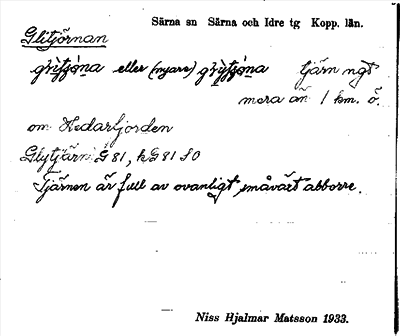 Särna sn Särna och Idre tg Kopp. län.
Glitjörnan
eller (nyare) tjärn ngt
mera än 1 km. ö.
om Hedarfjorden
Glytjärn G 81, kG 81 SO
Tjärnen är full av ovanligt småväxt abborre.
Niss Hjalmar Matsson 1933.